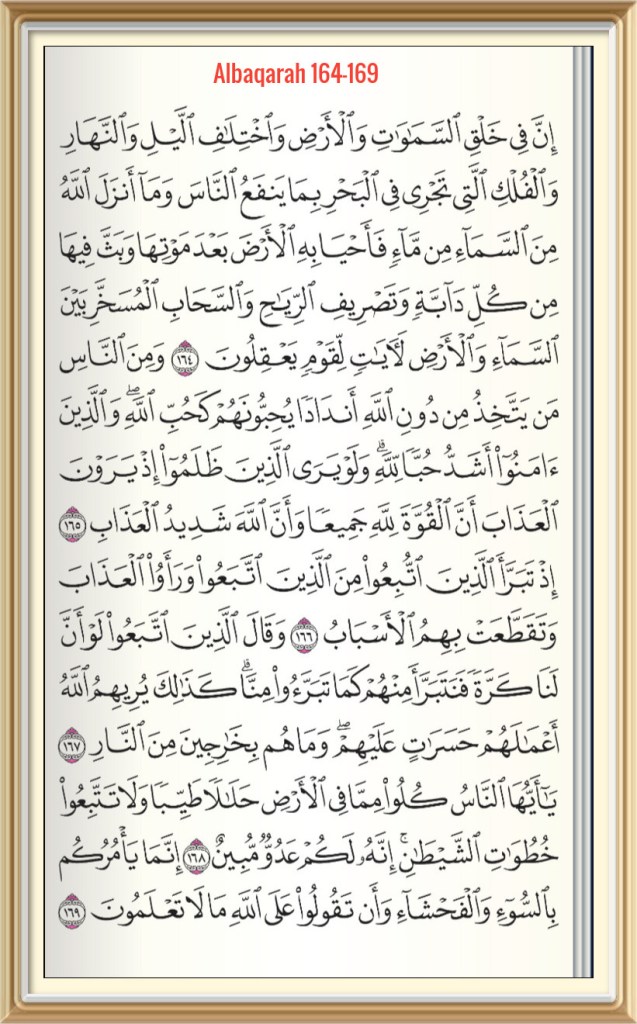 Albaqarah 164-169
إِنَّ فِي خَلْقِ ٱلسَّمَٰوَٰتِ وَٱلْأَرْضِ وَٱخْتِلَٰفِ ٱلَّيْلِ وَٱلنَّهَارِ
وَٱلْفُلْكِ ٱلَّتِي تَجْرِي فِي ٱلْبَحْرِ بِمَا يَنفَعُ ٱلنَّاسَ وَمَآ أَنزَلَ ٱللَّهُ
مِنَ ٱلسَّمَآءِ مِن مَّآءٍ فَأَحْيَا بِهِ ٱلْأَرْضَ بَعْدَ مَوْتِهَا وَبَثَّ فِيهَا
مِن كُلِّ دَآبَّةٍ وَتَصْرِيفِ ٱلرِّيَٰحِ وَٱلسَّحَابِ ٱلْمُسَخَّرِ بَيْنَ
ٱلسَّمَآءِ وَٱلْأَرْضِ لَءَايَٰتٍ لِّقَوْمٍ يَعْقِلُونَ ١٦٤ وَمِنَ ٱلنَّاسِ
مَن يَتَّخِذُ مِن دُونِ ٱللَّهِ أَندَادًا يُحِبُّونَهُمْ كَحُبِّ ٱللَّهِۖ وَٱلَّذِينَ
ءَامَنُوٓا۟ أَشَدُّ حُبًّا لِّلَّهِۗ وَلَوْ يَرَى ٱلَّذِينَ ظَلَمُوٓا۟ إِذْ يَرَوْنَ
ٱلْعَذَابَ أَنَّ ٱلْقُوَّةَ لِلَّهِ جَمِيعًا وَأَنَّ ٱللَّهَ شَدِيدُ ٱلْعَذَابِ ١٦٥
إِذْ تَبَرَّأَ ٱلَّذِينَ ٱتُّبِعُوا۟ مِنَ ٱلَّذِينَ ٱتَّبَعُوا۟ وَرَأَوُا۟ ٱلْعَذَابَ
وَتَقَطَّعَتْ بِهِمُ ٱلْأَسْبَابُ ١٦٦ وَقَالَ ٱلَّذِينَ ٱتَّبَعُوا۟ لَوْ أَنَّ
لَنَا كَرَّةً فَنَتَبَرَّأَ مِنْهُمْ كَمَا تَبَرَّءُوا۟ مِنَّاۗ كَذَٰلِكَ يُرِيهِمُ ٱللَّهُ
أَعْمَٰلَهُمْ حَسَرَٰتٍ عَلَيْهِمْۖ وَمَا هُم بِخَٰرِجِينَ مِنَ ٱلنَّارِ ١٦٧
يَٰٓأَيُّهَا ٱلنَّاسُ كُلُوا۟ مِمَّا فِي ٱلْأَرْضِ حَلَٰلًا طَيِّبًا وَلَا تَتَّبِعُوا۟
خُطُوَٰتِ ٱلشَّيْطَٰنِۚ إِنَّهُۥ لَكُمْ عَدُوٌّ مُّبِينٌ ١٦٨ إِنَّمَا يَأْمُرُكُم
بِٱلسُّوٓءِ وَٱلْفَحْشَآءِ وَأَن تَقُولُوا۟ عَلَى ٱللَّهِ مَا لَا تَعْلَمُونَ ١٦٩